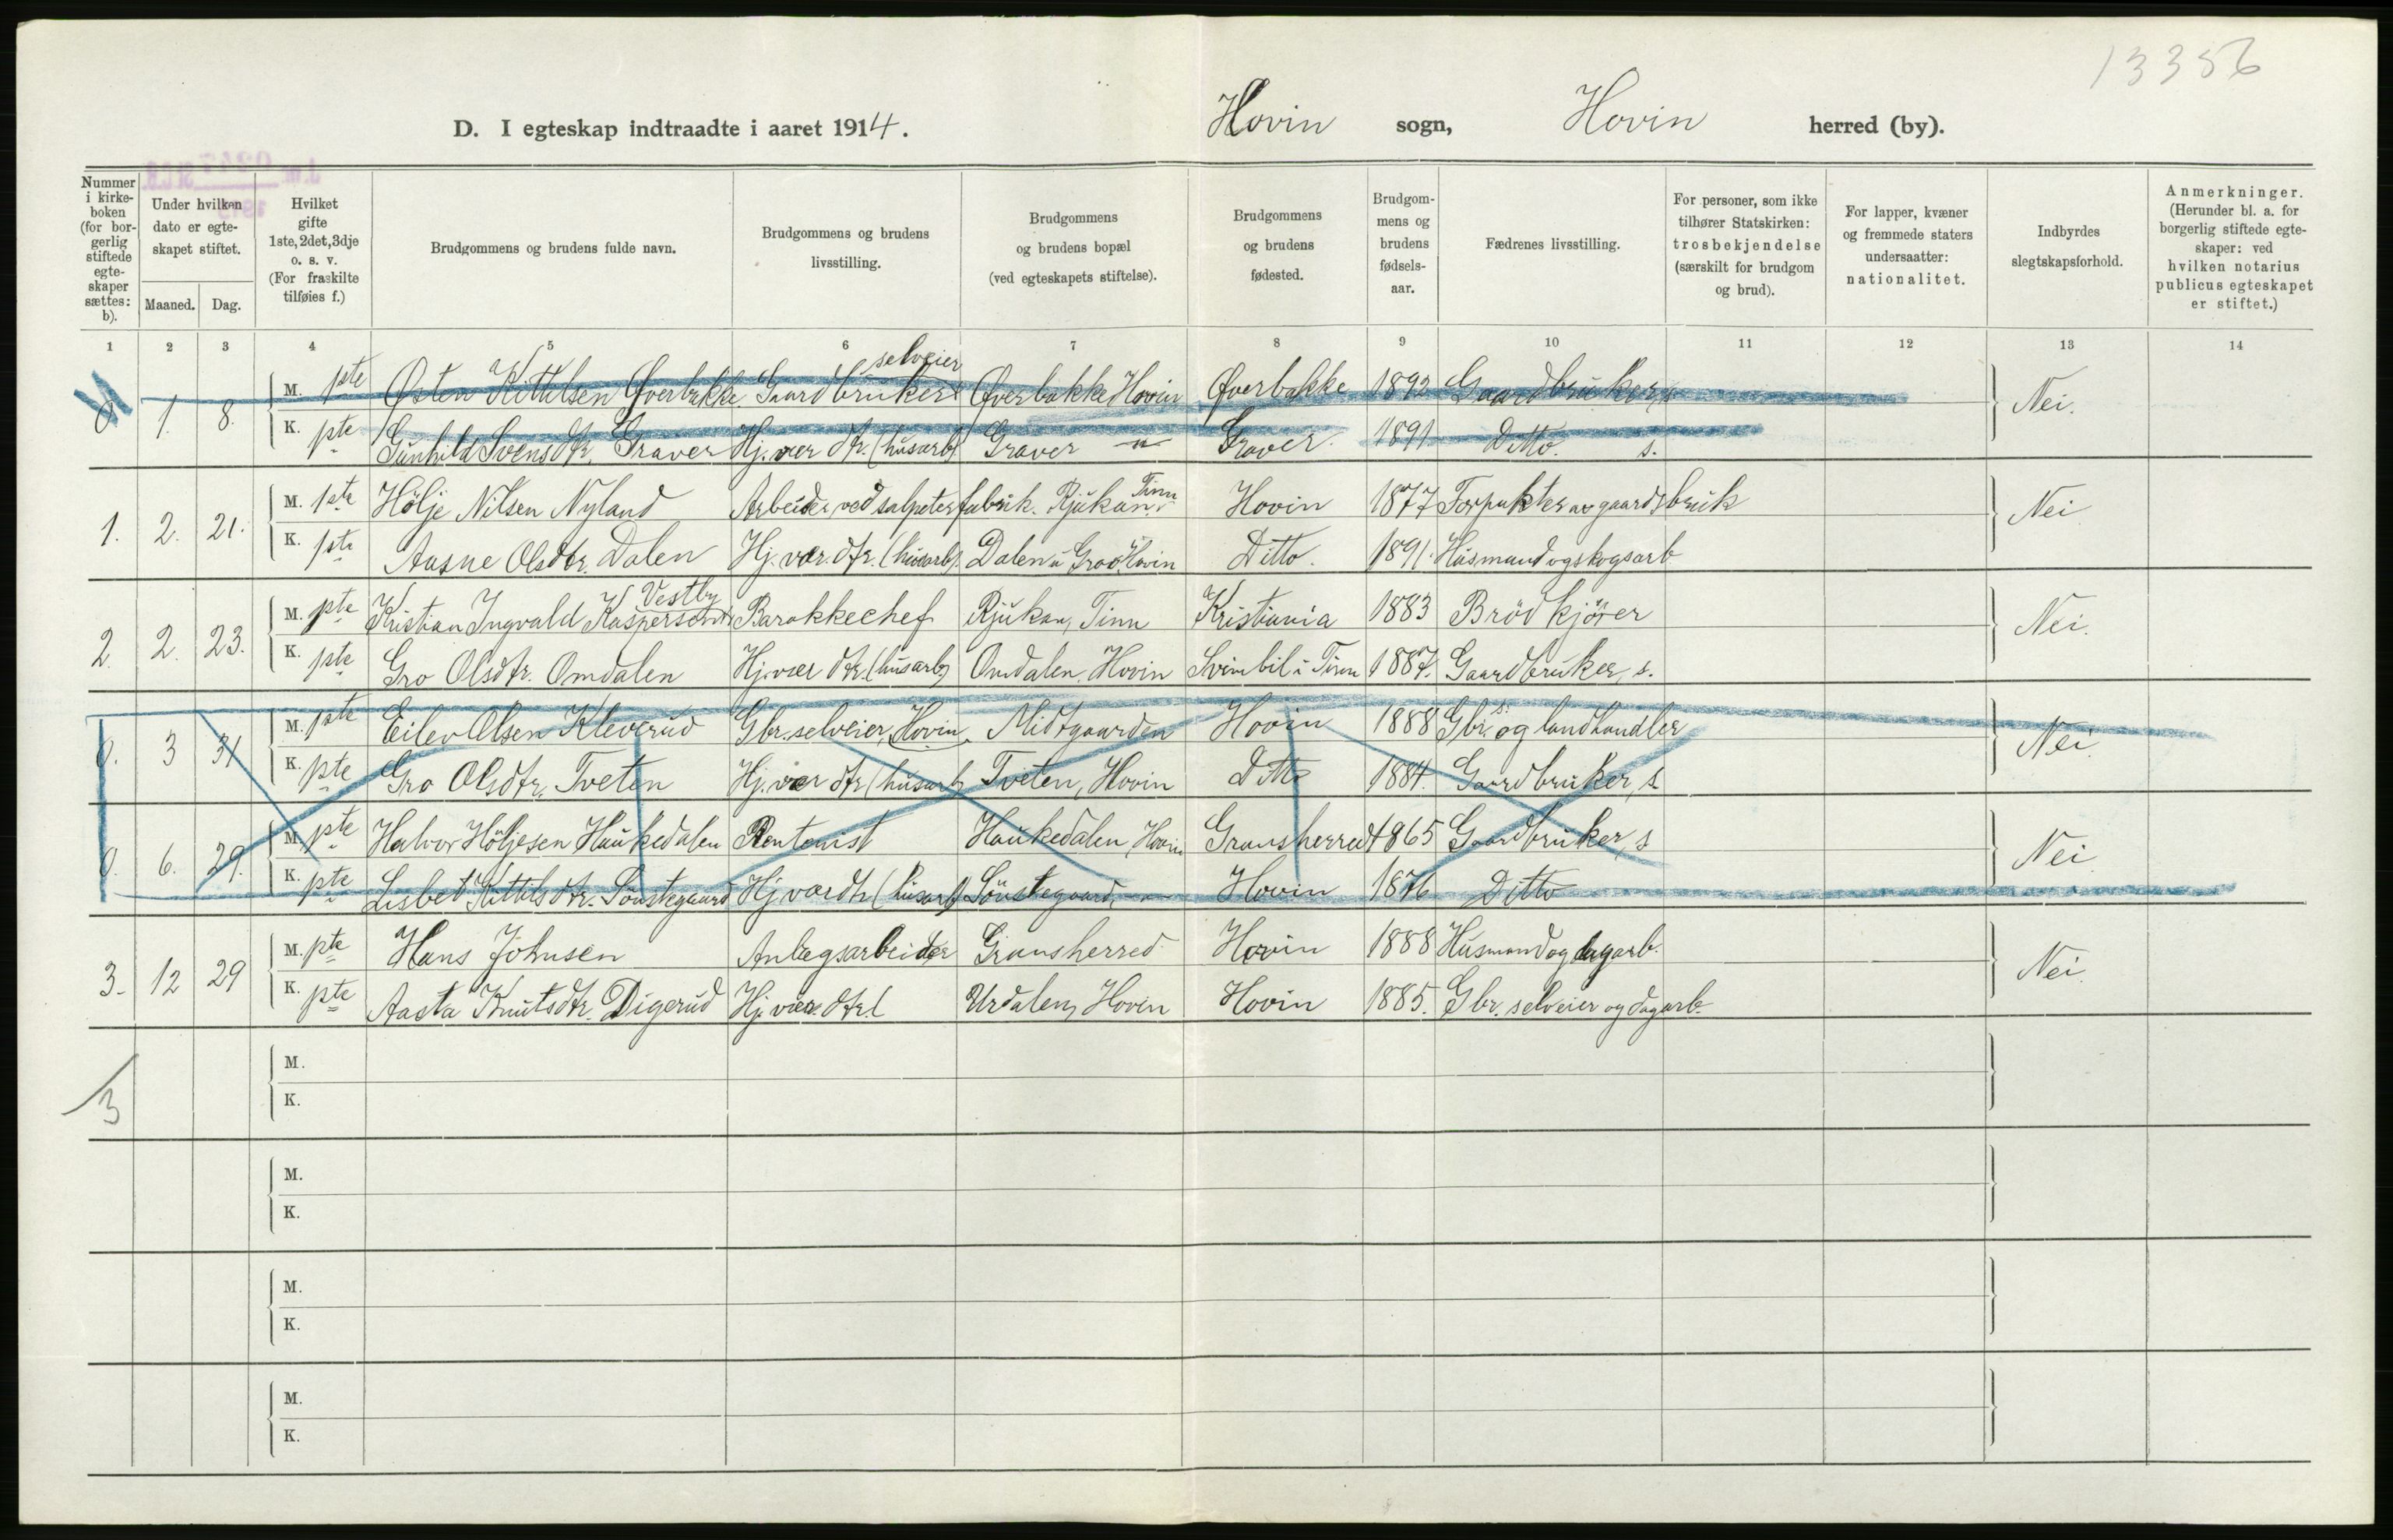 13356
D. I egteskap indtraadte i aaret 1914. Hovin sogn, Hovin herred (by).
Nummer i kirkeboken (for borgerlig stiftede egteskaper sættes: b).
Under hvilken dato er egteskapet stiftet.
Maaned. Dag.
Hvilket gifte 1ste, 2det, 3dje o. s. v. (For fraskilte tilføies f.)
Brudgommens og brudens fulde navn.
Brudgommens og brudens livsstilling.
Brudgommens og brudens bopæl (ved egteskapets stiftelse).
Brudgommens og brudens fødested.
Brudgommens og brudens fødselsaar.
Fædrenes livsstilling.
For personer, som ikke tilhører Statskirken: trosbekjendelse (særskilt for brudgom og brud).
For lapper, kvæner og fremmede staters undersaatter: nationalitet.
Indbyrdes slegtskapsforhold.
Anmerkninger. (Herunder bl. a. for borgerlig stiftede egteskaper: ved hvilken notarius publicus egteskapet er stiftet.)
1 2 3 4 5 6 7 8 9 10 11 12 13 14
selveier
M. 1ste Østen Kittilsen Øverbakke Gaardbruker Øverbakke Hovin Øverbakke 1892 Gaardbruker, s
0 1. 8. Nei.
K. 1ste Gunhild Svensdtr. Graver Hj. vær dtr. (husarb) Graver " Graver. 1891 Ditto. s.
M. 1ste Hölje Nilsen Nyland Arbeider ved salpeterfabrik. Rjukan, Tinn Hovin 1877 Forpakter av gaardsbruk
1. 2. 21. Nei
K. 1ste Aasne Olsdtr. Dalen Hj. vær. dtr. (husarb). Dalen u Hovin Ditto. 1891. Husmand og skogsarb
Vestby
M. 1ste Kristian Ingvald Kaspersen Barakkechef Rjukan, Tinn Kristiania 1883 Brödkjörer
2. 2. 23. Nei.
K. 1ste Gro Olsdtr. Omdalen Hj. vær dtr. (husarb) Omdalen, Hovin Svinbil i Tinn 1887. Gaardbruker, s.
M. 1ste Eilev Olsen Kleverud Gbr. selveier, Hovin, Midtgaarden Hovin 1888 Gbr. s. og landhandler
0. 3 31 Nei
K. 1ste Gro Olsdtr. Tveten Hj. vær dtr (husarb) Tveten, Hovin Ditto 1884. Gaardbruker, s
M. 1ste Halvor Höljesen Haukedalen Rentenist Haukedalen, Hovin Gransherred 1865 Gaardbruker, s
0. 6. 29. Nei
K. 1ste Lisbet Kittilsdtr. Sönstegaard Hj værdtr (husarb) Sönstegaard, " Hovin 1876 Ditto
M. 1ste Hans Johnsen Anlægsarbeider Gransherred Hovin 1888 Husmand og dagarb.
3. 12 29 Nei.
K. 1ste Aasta Knutsdtr. Digerud Hj. vær. dtr. ( Urdalen, Hovin Hovin 1885. Gbr. selveier og dagarb.
M.
3
K.
M.
K.
M.
K.
M.
K.